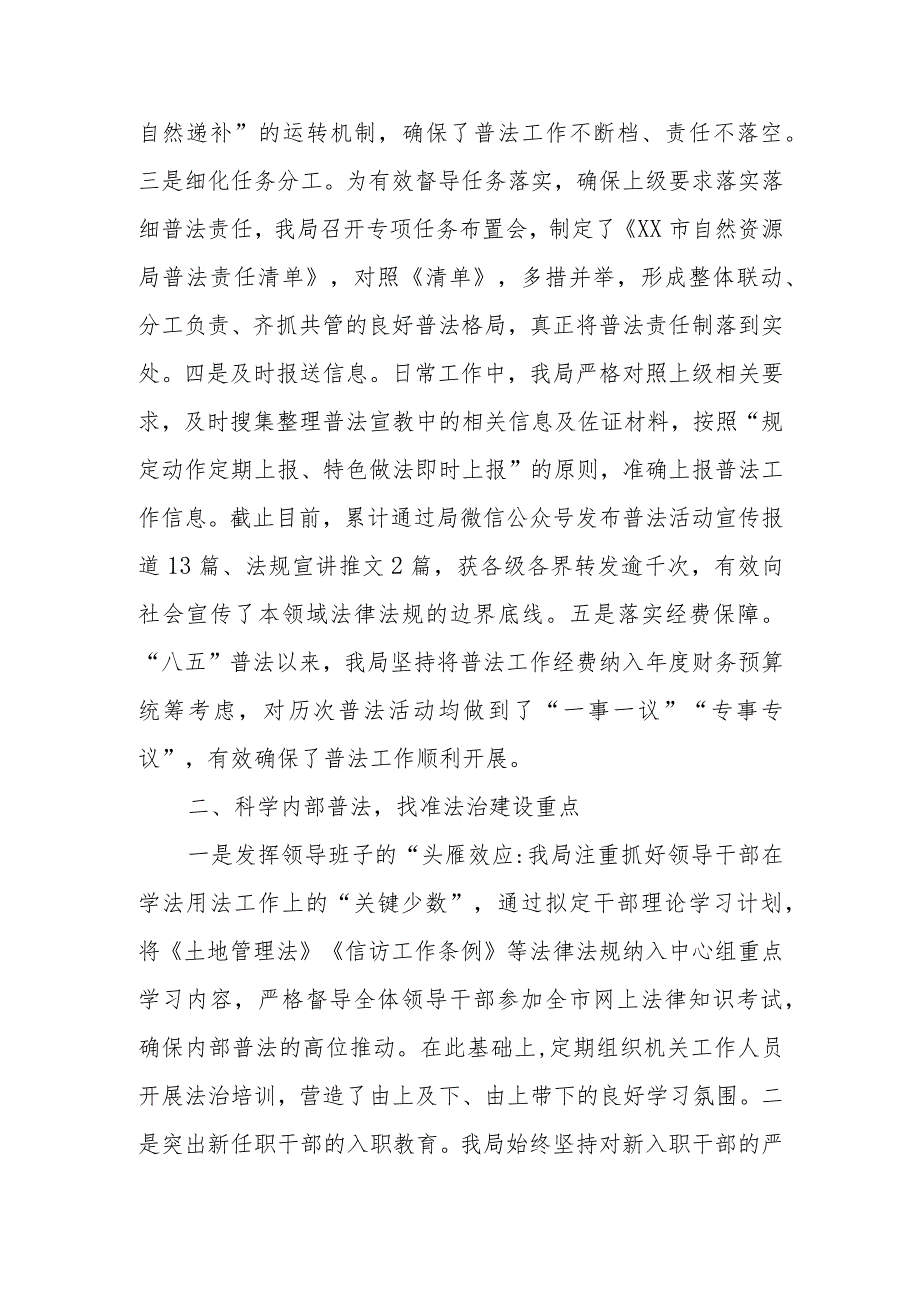 自然递补”的运转机制，确保了普法工作不断档、责任不落空。
三是细化任务分工。为有效督导任务落实，确保上级要求落实落
细普法责任，我局召开专项任务布置会，制定了《XX 市自然资源
局普法责任清单》，对照《清单》，多措并举，形成整体联动、
分工负责、齐抓共管的良好普法格局，真正将普法责任制落到实
处。四是及时报送信息。日常工作中，我局严格对照上级相关要
求，及时搜集整理普法宣教中的相关信息及佐证材料，按照“规
定动作定期上报、特色做法即时上报”的原则，准确上报普法工
作信息。截止目前，累计通过局微信公众号发布普法活动宣传报
道 13 篇、法规宣讲推文 2 篇，获各级各界转发逾千次，有效向
社会宣传了本领域法律法规的边界底线。五是落实经费保障。
“八五”普法以来，我局坚持将普法工作经费纳入年度财务预算
统筹考虑，对历次普法活动均做到了“一事一议”“专事专
议”，有效确保了普法工作顺利开展。
二、科学内部普法，找准法治建设重点
一是发挥领导班子的“头雁效应:我局注重抓好领导干部在
学法用法工作上的“关键少数”，通过拟定干部理论学习计划，
将《土地管理法》《信访工作条例》等法律法规纳入中心组重点
学习内容，严格督导全体领导干部参加全市网上法律知识考试，
确保内部普法的高位推动。在此基础上,定期组织机关工作人员
开展法治培训，营造了由上及下、由上带下的良好学习氛围。二
是突出新任职干部的入职教育。我局始终坚持对新入职干部的严